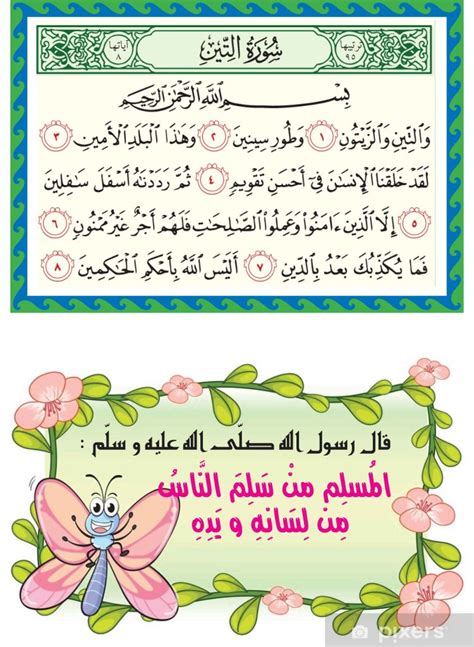 ترتيبها ٩٥ سُورَةُ التِّينِ آياتها ٨
بِسْمِ ٱللَّهِ ٱلرَّحْمَٰنِ ٱلرَّحِيمِ
وَٱلتِّينِ وَٱلزَّيْتُونِ ١ وَطُورِ سِينِينَ ٢ وَهَٰذَا ٱلْبَلَدِ ٱلْأَمِينِ ٣
لَقَدْ خَلَقْنَا ٱلْإِنسَٰنَ فِىٓ أَحْسَنِ تَقْوِيمٍ ٤ ثُمَّ رَدَدْنَٰهُ أَسْفَلَ سَٰفِلِينَ
٥ إِلَّا ٱلَّذِينَ ءَامَنُوا۟ وَعَمِلُوا۟ ٱلصَّٰلِحَٰتِ فَلَهُمْ أَجْرٌ غَيْرُ مَمْنُونٍ ٦
فَمَا يُكَذِّبُكَ بَعْدُ بِٱلدِّينِ ٧ أَلَيْسَ ٱللَّهُ بِأَحْكَمِ ٱلْحَٰكِمِينَ ٨
قال رسول الله صلّى الله عليه و سلّم :
المُسلِم مِنْ سَلِمَ النَّاسُ
مِنْ لِسَانِهِ و يَدِهِ
pixers